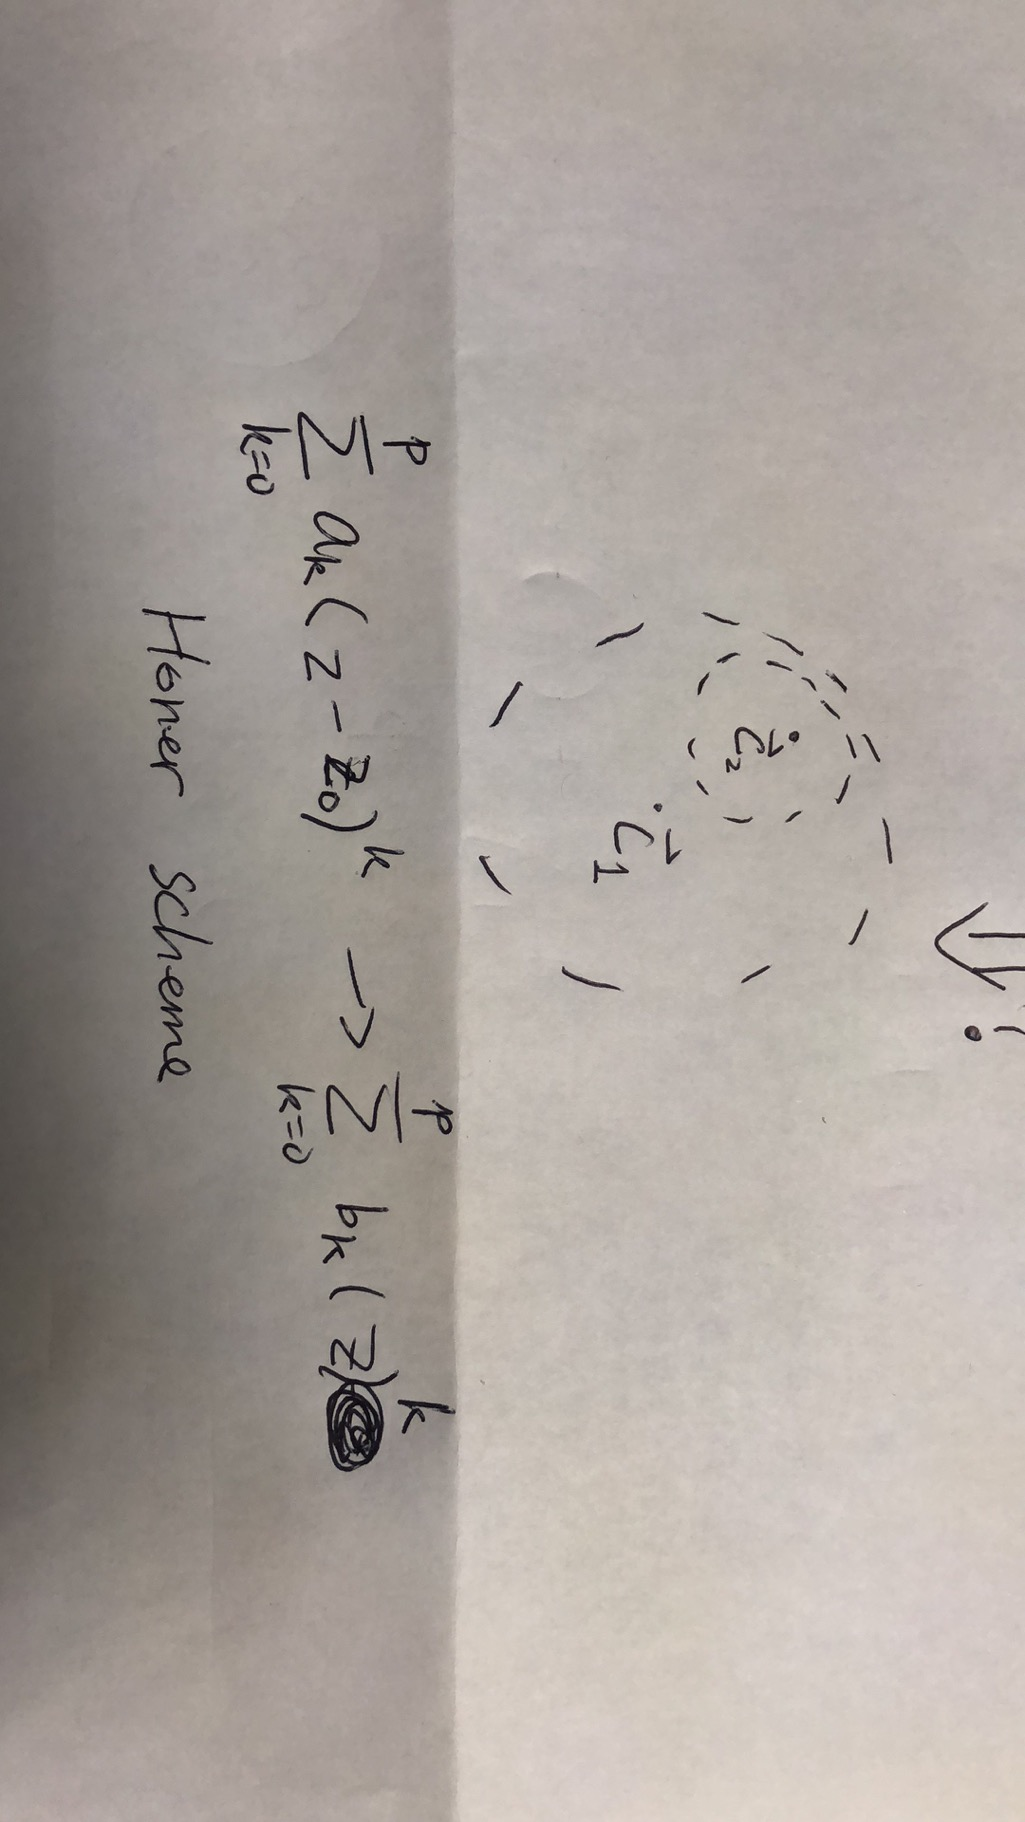 ⇓ ?
c⃗₂
c⃗₁
∑_{k=0}^{p} a_k (z - z_0)^k → ∑_{k=0}^{p} b_k (z)^k
Honer scheme